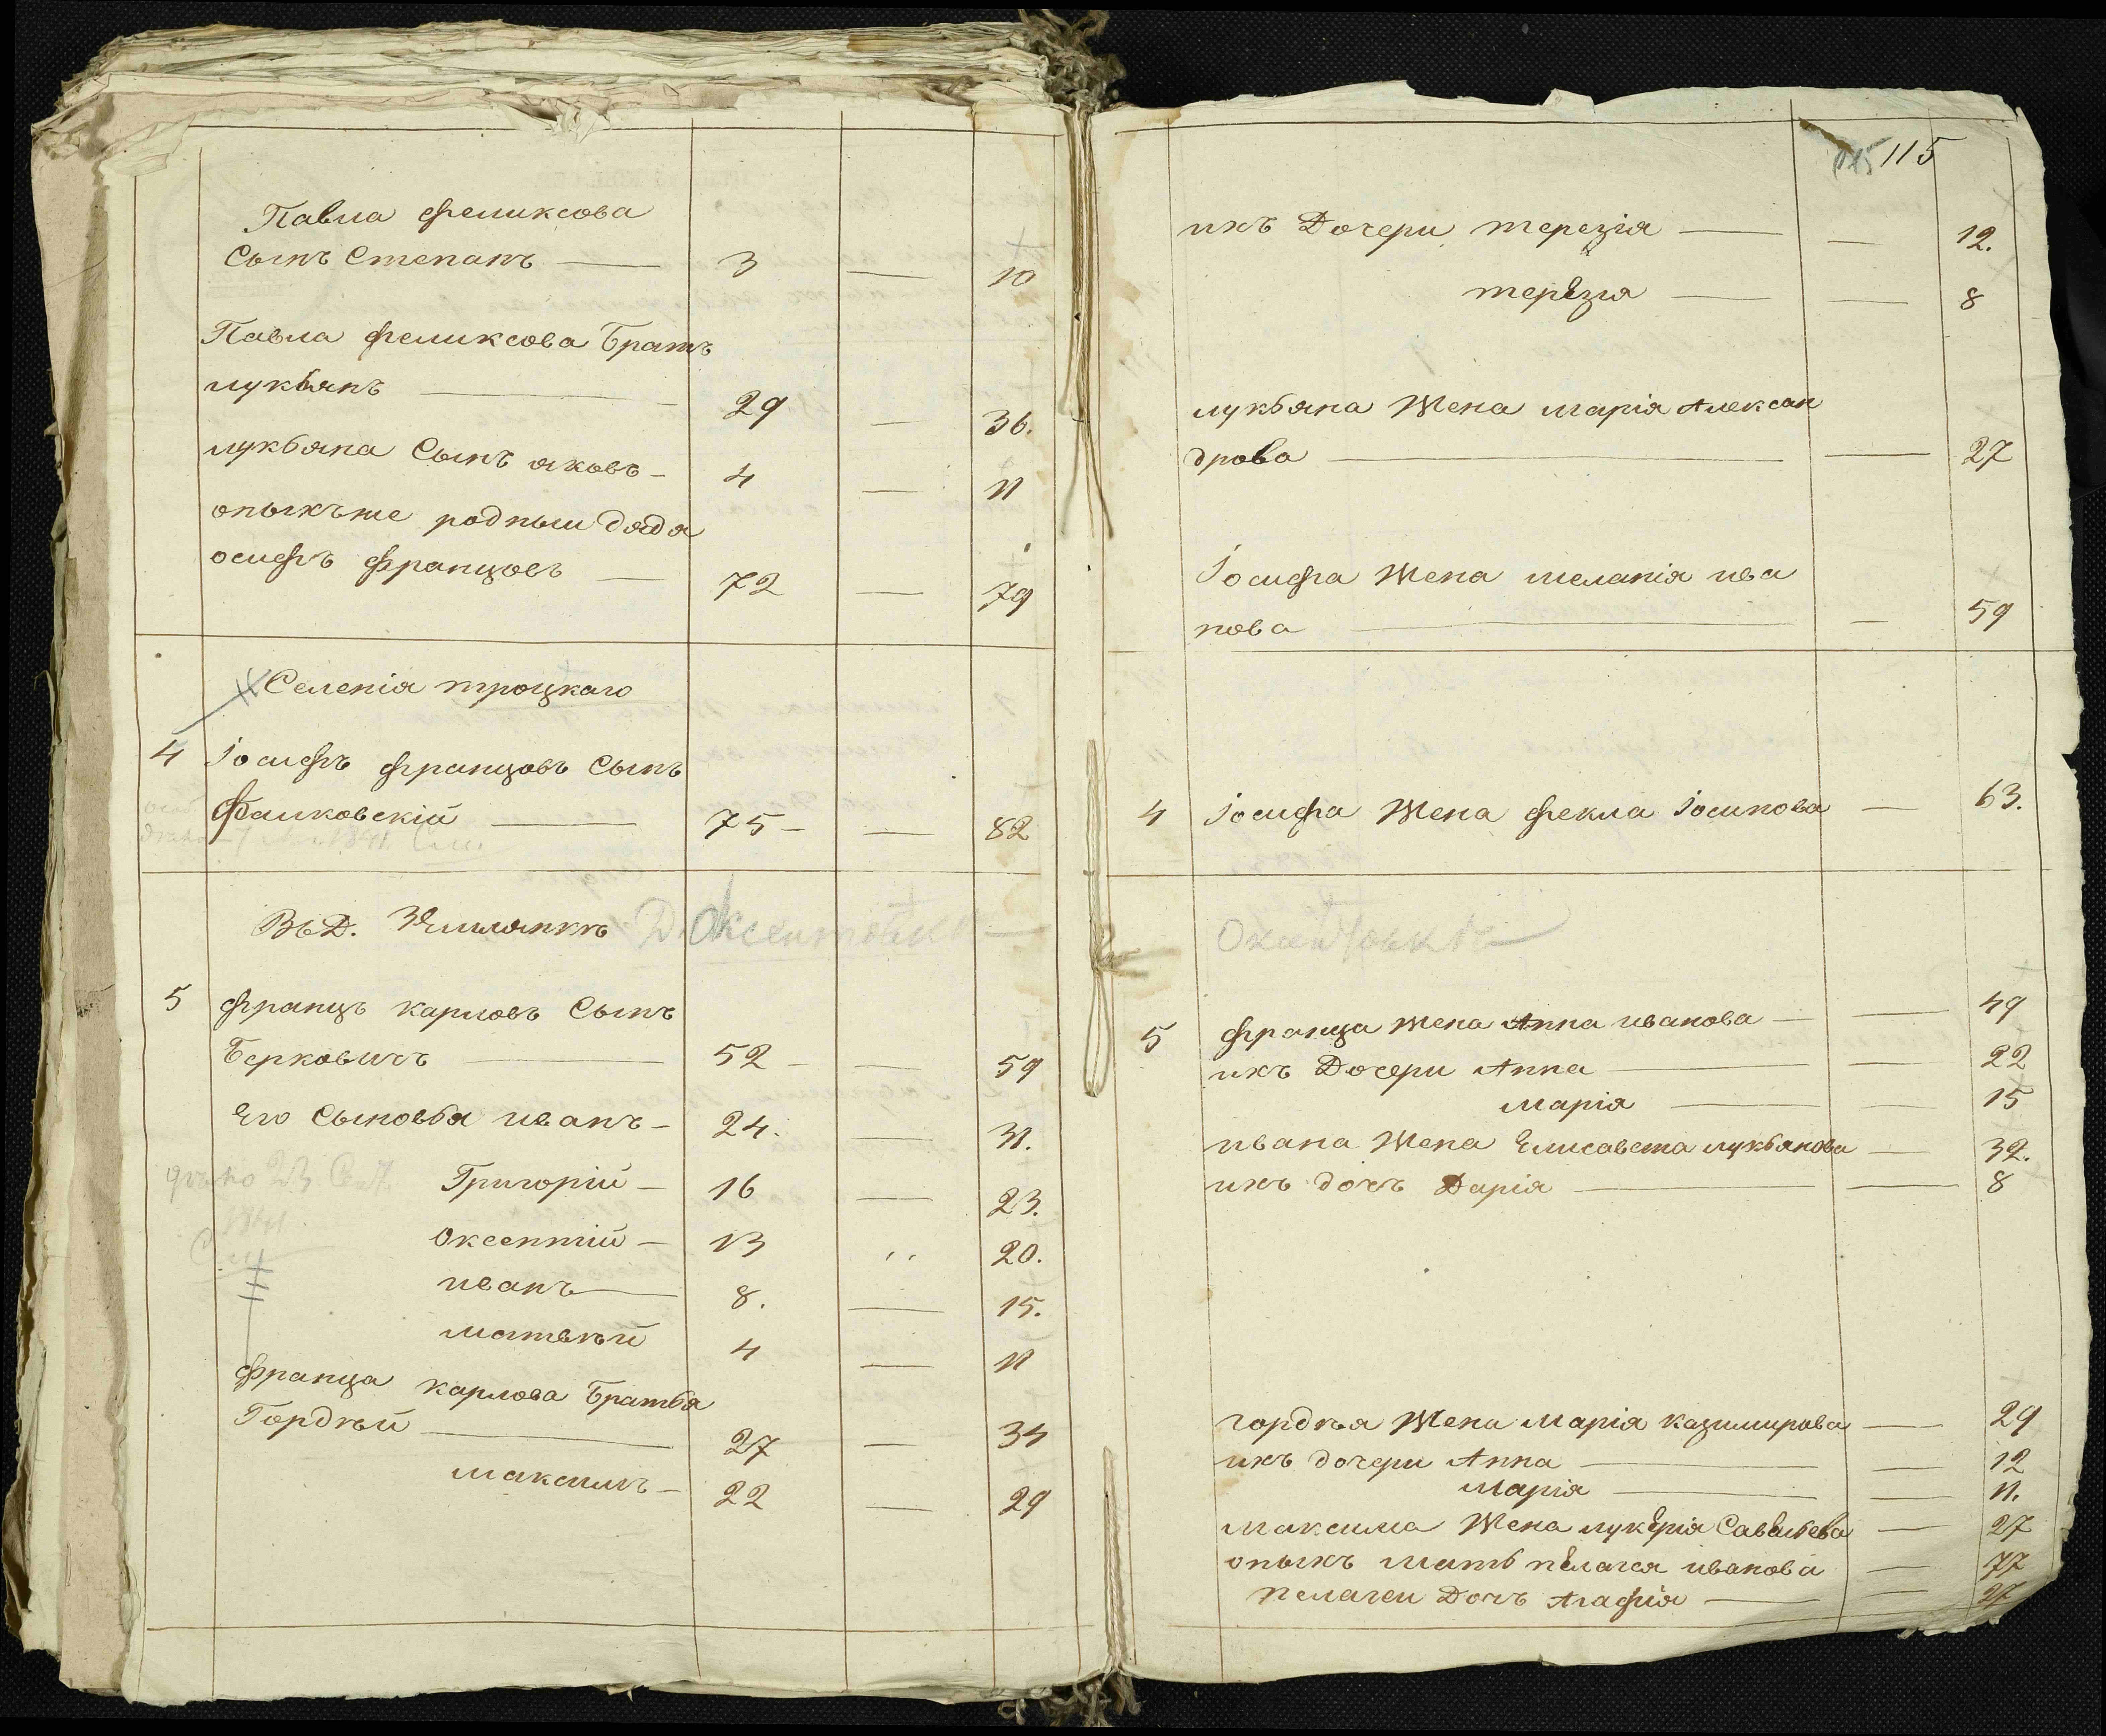 Павла феликсова
Сынъ Степанъ — 3 — 10
Павла феликсова Братъ
лукьянъ — 29 — 36.
лукьяна Сынъ яковъ — 4 — 11
оныхъже родныи дядя
осифъ францовъ — 72 — 79
Селенія троцкаго
4 Іосифъ францовъ Сынъ
Фалковскій — 75 — 82
ВъД.
5 францъ карловъ Сынъ
Берковичъ — 52 — 59
Его Сыновья иванъ — 24. — 31.
Григорій — 16 — 23.
Оксентій — 13 „ 20.
иванъ — 8. — 15.
матвѣй 4 — 11
франца карлова Братья
Гордѣй — 27 — 34
максимъ — 22 — 29
115 115
ихъ Дочери терезія — — 12.
терезія — — 8
лукьяна Жена марія Алексан
дрова — — 27
Іосифа Жена меланія ива
нова — — 59
4 Іосифа Жена фекла Іосипова — 63.
5 франца Жена Анна иванова — — 49
ихъ Дочери Анна — — 22
марія — — 15
ивана Жена Елисавета лукьянова — 32.
ихъ дочъ Дарія — — 8
гордѣя Жена Марія казимирова — 29
ихъ дочери Анна — — 12
Марія — — 11.
максима Жена лукерія Савельева — 27
оныхъ мать пелагея иванова — 77
Пелагеи Дочъ Агафія — — 27